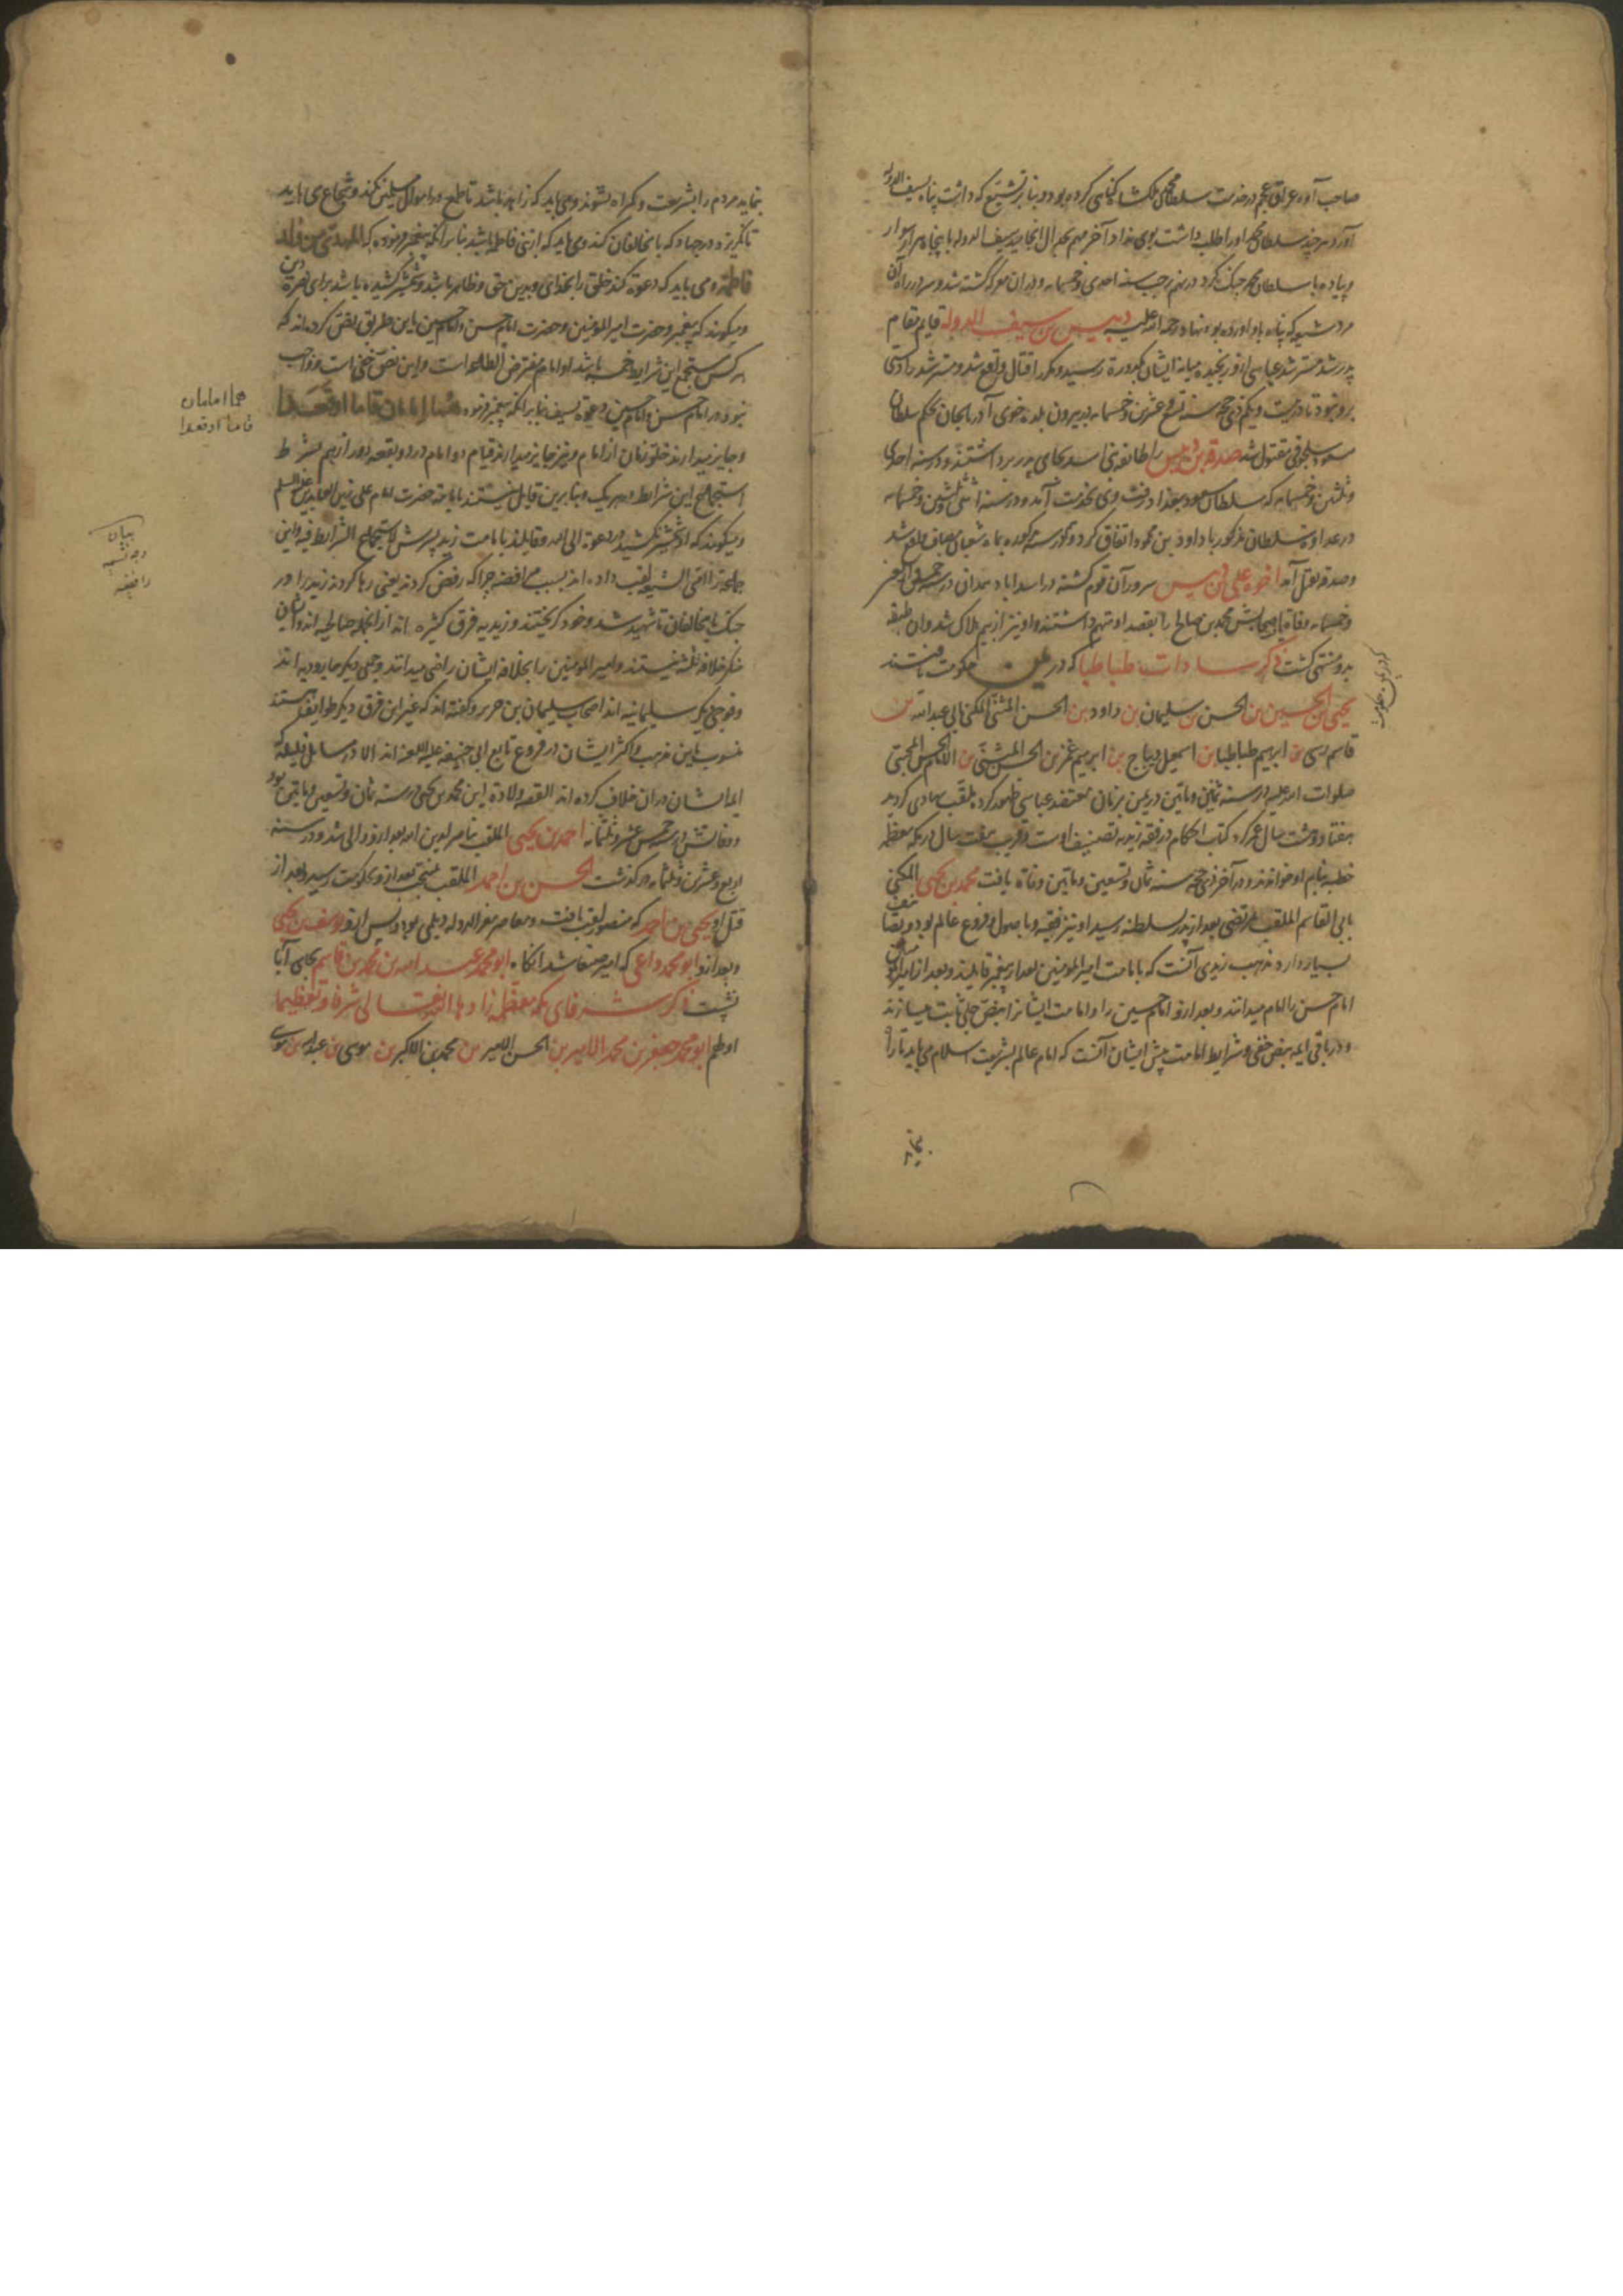 صاحب آوه در عراق عجم در خدمت سلطان محمد بن ملکشاه گناهی کرده بود و بنابر تشیع که داشت پناه بسیف الدوله
آورد هر چند سلطان محمد او را طلب داشت بوی نداد آخر مهم بجدال انجامید سیف الدوله با پنجاه هزار سوار
و پیاده با سلطان محمد جنگ کرد در نهم رجب سنه احدی و خمسمایه و در آن معرکه کشته شد و سر در راه آن
مرد شیعه که پناه باو آورده بود نهاد رحمة الله علیه دبیس بن سیف الدوله قایم مقام
پدر شد مسترشد عباسی ازو رنجیده میانه ایشان بکدورة رسید و مکرر قتال واقع شد و مسترشد را دستی
برو نبود تا در بیست و یکم ذی حجه سنه تسع و عشرین و خمسمایه در بیرون بلده خوی آذربایجان بحکم سلطان
مسعود سلجوقی مقتول شد صدقه بن دبیس را طایفه بنی اسد بجای پدر برداشتند و در سنه احدی
و ثلثین و خمسمایه که سلطان مسعود ببغداد رفت وی بخدمت آمد و در سنه اثنی و ثلثین و خمسمایه
در عداوة سلطان مذکور با داود بن محمود اتفاق کرد و در سنه مذکوره بماه شعبان مصاف واقع شد
و صدقه بقتل آمد اخوه علی بن دبیس سرور آن قوم گشته در اسداباد همدان در سنه خمس و اربعین
و خمسمایه وفاة یافت محمد بن صالح را بقصد او متهم داشتند و او نیز از بیم هلاک شد و آن طبقه
بدو منتهی گشت ذکر سادات طباطبا که در یمن حکومت یافتند
که در یمن حکومت
یحیی بن الحسین بن الحسن بن سلیمان بن داود بن الحسن المثنی المکنی بابی عبد الله بن
قاسم رسی بن ابرهیم طباطبا بن اسمعیل دیباج بن ابرهیم غمر بن الحسن المثنی بن الامام الحسن المجتبی
صلوات الله علیه در سنه ثمانین و ماتین در یمن بزمان معتضد عباسی ظهور کرده ملقب بهادی گردید
هفتاد و هشت سال عمر کرد کتاب احکام در فقه زیدیه تصنیف اوست و قریب هفت سال در مکه معظمه
خطبه بنام او خواندند و در آخر ذی حجه سنه ثمان و تسعین و ماتین وفاة یافت محمد بن یحیی المکنی
بابی القاسم الملقب بمرتضی بعد از پدر بسلطنه رسید او نیز فقیه و باصول و فروع عالم بود و تصانیف
بسیار دارد مذهب زیدی آنست که بامامت امیر المومنین بعد از پیغمبر قایلند و بعد از امیر المومنین
امام حسن را امام میدانند و بعد ازو امام حسین را و امامت ایشانرا بنص جلی ثابت میسازند
و در باقی ایمه بنص خفی و شرایط امامت پیش ایشان آنست که امام عالم بشریعت اسلام می باید تا راه
نماید
نماید مردم را بشریعت و گمراه نشوند و می باید که زاهد باشد تا طمع در اموال مسلمین نکند و شجاع می باید
تا نگریزد در جهاد که با مخالفان کند و می باید که از بنی فاطمه باشد بنابر آنکه پیغمبر فرموده که المهدی من ولد
فاطمة و می باید که دعوة کند خلق را بخدای و بدین حق و ظاهر باشد و شمشیر کشیده باشد برای نصرة دین
و میگویند که پیغمبر و حضرت امیر المومنین و حضرت امام حسن و امام حسین باین طریق نص کرده اند که
هر کس مستجمع این شرایط خمسه باشد او امام مفترض الطاعه است و این نص خفی است و واجب
نبود در امام حسن و امام حسین دعوة بسیف بنابر آنکه پیغمبر فرموده هما امامان قاما او قعدا
هما امامان
قاما او قعدا
و جایز میدارند خلو زمان از امام و نیز جایز میدارند قیام دو امام در دو بقعه دور از هم بشرط
استجماع این شرایط در هر یک و بنابرین قایل نیستند بامامة حضرت امام علی زین العابدین علیه السلم
و میگویند که او شمشیر نکشید در دعوة الی الله و قایلند بامامت زید پسرش لاستجماع الشرایط فیه و این
بیان
وجه تسمیه
رافضه
جماعة باقی الشیعه لقب داده اند بسبب رافضه چرا که رفض کردند یعنی رها کردند زید را در
جنگ با مخالفان تا شهید شد و خود گریختند و زیدیه فرق کثیره اند از آنجمله صالحیه اند و ایشان
منکر خلافة ثلثه نیستند و امیر المومنین را بخلافة ایشان راضی میدانند و جمعی دیگر جارودیه اند
و فوجی دیگر سلیمانیه اند اصحاب سلیمان بن جریر و گفته اند که غیر این فرق دیگر طوایف هستند
منسوب باین مذهب و اکثر ایشان در فروع تابع ابی حنیفه علیه اللعنه اند الا در مسایل قلیله که
ایمه ایشان در آن خلاف کرده اند القصه ولادة این محمد بن یحیی در سنه ثمان و تسعین و ماتین بود
و وفاتش در سنه خمس عشر و ثلثمایه احمد بن یحیی الملقب بناصر لدین الله بعد ازو والی شد و در سنه
اربع و عشرین و ثلثمایه درگذشت الحسن بن احمد الملقب بمنتجب بعد ازو بحکومت رسید و بعد از
قتل او یحیی بن احمد که منصور لقب یافت و معاصر معز الدوله دیلمی بود و پس ازو یوسف بن یحیی
و بعد ازو ابو محمد داعی که امیر صنعا شد آنگاه ابو محمد عبد الله بن محمد بن قاسم بجای آبا
نشست ذکر شرفای مکه معظمه زادها الله تعالی شرفا و تعظیما
اولهم ابو محمد جعفر بن محمد الامیر بن الحسن الامیر بن محمد بن الاکبر بن موسی بن عبد الله بن موسی